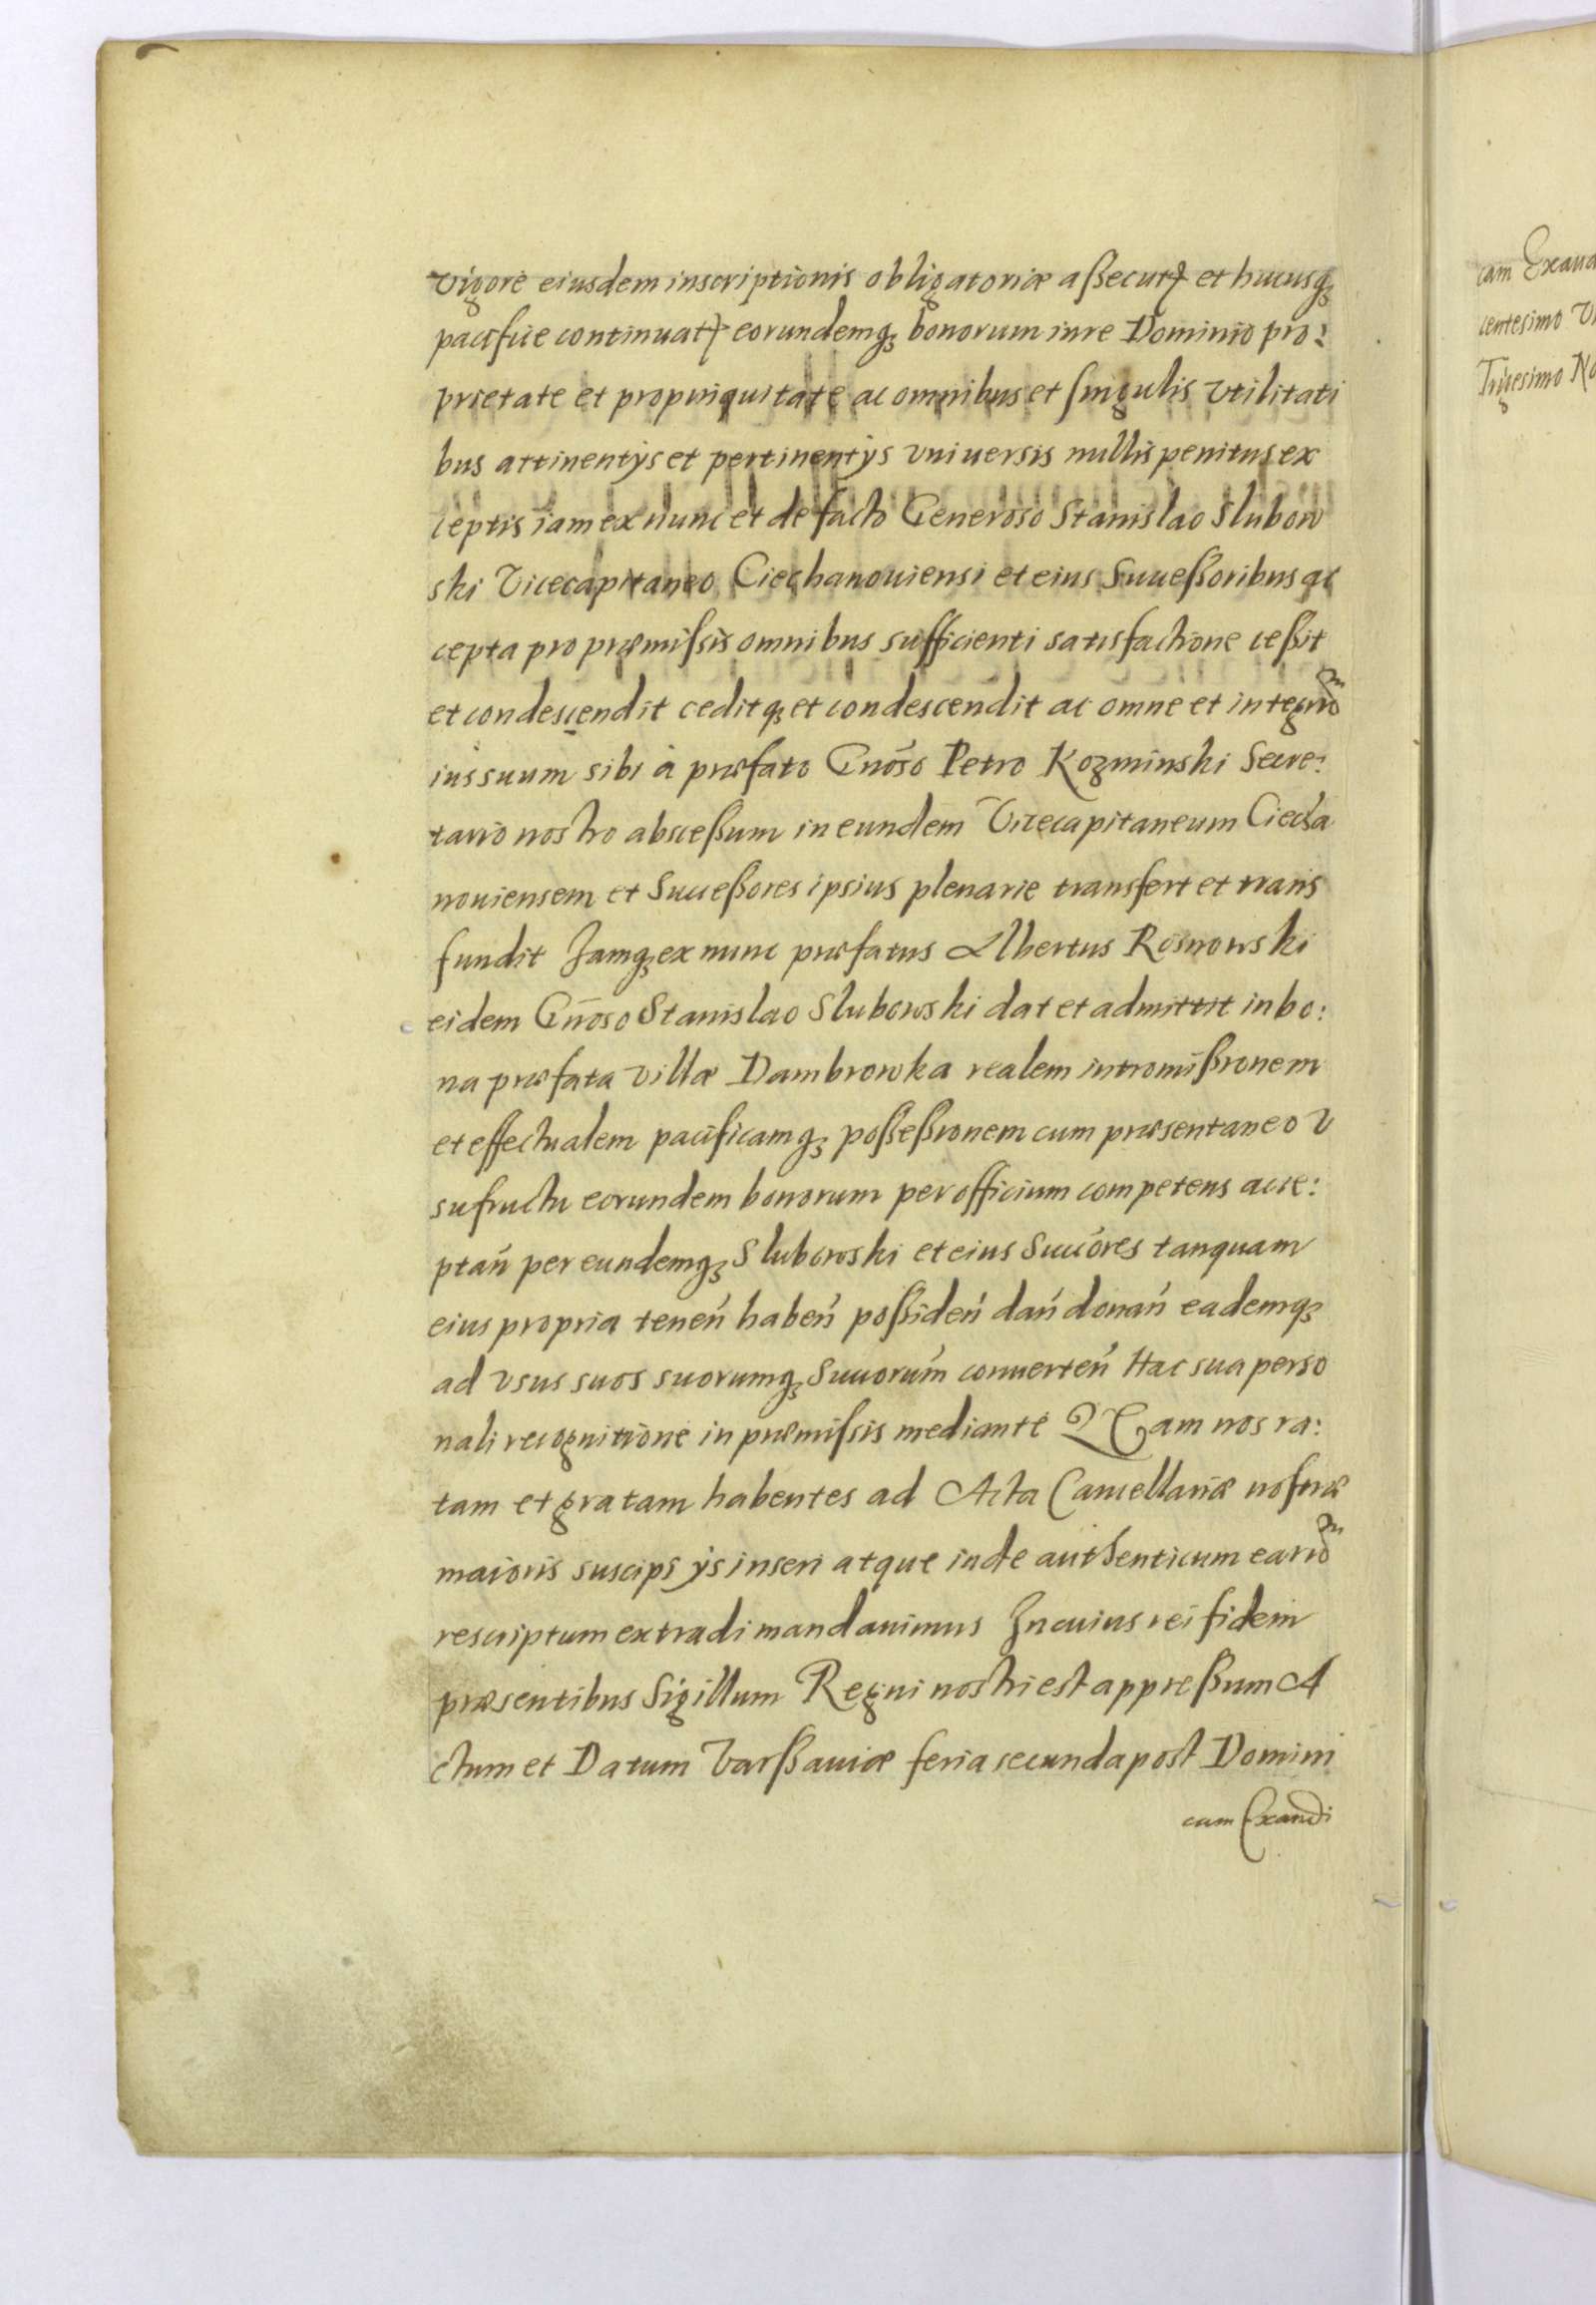 vigore eiusdem inscriptionis obligatoriæ aßecutꝭ et hucusqꝫ
pacifice continuatꝭ eorundemqꝫ bonorum iure Dominio pro:
prietate et propinquitate ac omnibus et singulis vtilitati
bus attinentijs et pertinentijs vniuersis nullis penitus ex
ceptis iam ex nunc et de facto Generoso Stanislao Slubow
ski Vicecapitaneo Ciechanouiensi et eius Succeßoribus ac
cepta pro præmissis omnibus sufficienti satisfactione ceßit
et condescendit ceditqꝫ et condescendit ac omne et integrũ
ius suum sibi à præfato Gnoso Petro Kozminski Secre:
tario nostro absceßum in eundem Vicecapitaneum Ciecha
nouiensem et Succeßores ipsius plenarie transfert et trans
fundit Jamqꝫ ex nunc præfatus Albertus Rosnowski
eidem Gnoso Stanislao Slubowski dat et admittit in bo:
na præfata villæ Dambrowka realem intromißionem
et effectualem pacificamqꝫ poßeßionem cum præsentaneo v
sufructu eorundem bonorum per officium competens acce:
ptań per eundemqꝫ Slubowski et eius Succores tanquam
eius propria teneń habeń poßideń dań donań eademqꝫ
ad vsus suos suorumqꝫ Succorum conuerteń Hac sua perso
nali recognitione in præmissis mediante QEam nos ra:
tam et gratam habentes ad Acta Cancellariæ nostræ
maioris suscipi ijs inseri atque inde authenticum earũ
rescriptum extradi mandauimus In cuius rei fidem
præsentibus Sigillum Regni nostri est appreßum A
ctum et Datum Varßauiæ feria secunda post Domini
cam Exaudi
cam Exau
centesimo
Tricesimo